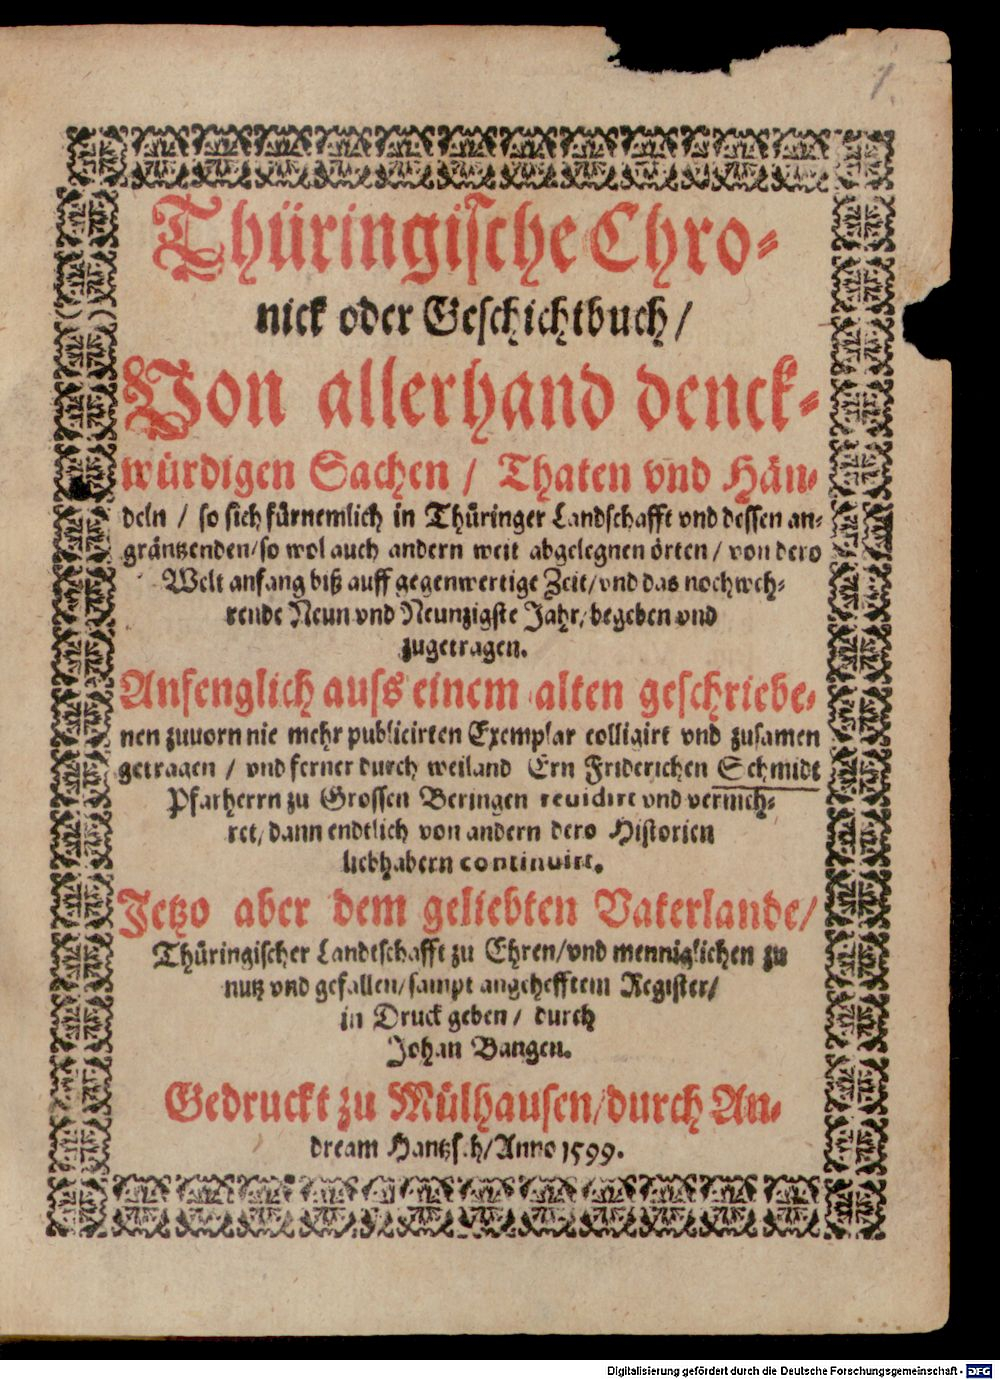 1.
Thüringische Chro-
nick oder Geschichtbuch/
Von allerhand denck-
würdigen Sachen / Thaten vnd Hän-
deln / so sich fürnemlich in Thüringer Landschafft vnd dessen an-
gräntzenden/so wol auch andern weit abgelegnen örten/ von dero
Welt anfang biß auff gegenwertige Zeit/vnd das nochweh-
rende Neun vnd Neunzigste Jahr/begeben vnd
zugetragen.
Anfenglich auss einem alten geschriebe-
nen zuuorn nie mehr publicirten Exemplar colligirt vnd zusamen
getragen / vnd ferner durch weiland Ern Friderichen Schmidt
Pfarherrn zu Grossen Beringen reuidirt vnd vermeh-
ret/dann endtlich von andern dero Historien
liebhabern continuirt.
Jetzo aber dem geliebten Vaterlande/
Thüringischer Landtschafft zu Ehren/vnd menniglichen zu
nutz vnd gefallen/sampt angehefftem Register/
in Druck geben/ durch
Johan Bangen.
Gedruckt zu Mülhausen/durch An-
dream Hantzsch/Anno 1599.
Digitalisierung gefördert durch die Deutsche Forschungsgemeinschaft - DFG